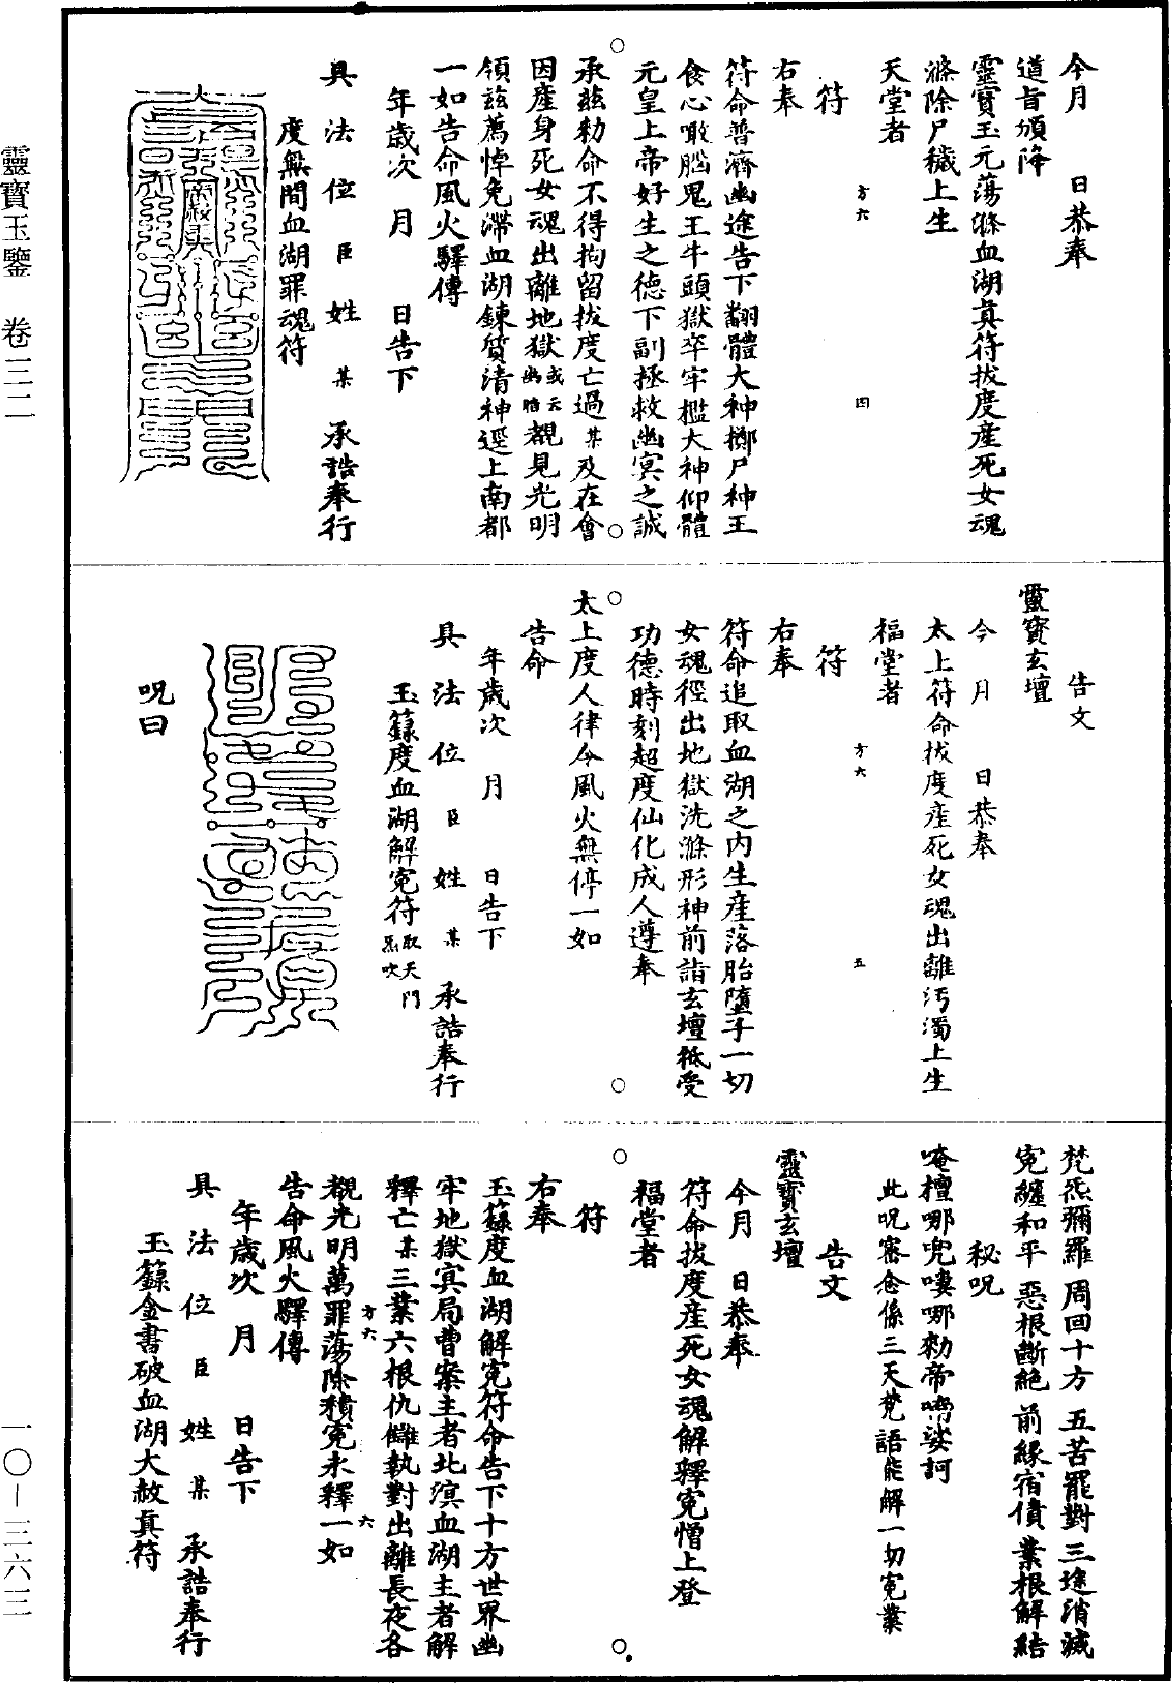 今月　日恭奉
道旨頒降
靈寶玉元蕩滌血湖真符拔度產死女魂
滌除尸穢上生
天堂者
方六　四
符
右奉
符命普濟幽途告下翻體大神擲尸神王
食心噉腦鬼王牛頭獄卒牢檻大神仰體
元皇上帝好生之德下副拯救幽冥之誠
承茲勑命不得拘留拔度亡過某及在會
因產身死女魂出離地獄或云幽暗覩見光明
領茲薦悼免滯血湖鍊質清神逕上南都
一如告命風火驛傳
年歲次　月　日告下
具　法　位　臣　姓　某　承誥奉行
度無間血湖罪魂符
告文
靈寶玄壇
今　月　日恭奉
太上符命拔度產死女魂出離汚濁上生
福堂者
方六　五
符
右奉
符命追取血湖之內生產落胎墮子一切
女魂徑出地獄洗滌形神前詣玄壇祗受
功德時刻超度仙化成人遵奉
太上度人律令風火無停一如
告命
年歲次　月　日告下
具　法　位　臣　姓　某　承誥奉行
玉籙度血湖解寃符取天門炁吹
呪曰
梵炁彌羅　周回十方　五苦罷對　三途消滅
寃纏和平　惡根斷絕　前緣宿債　業根解結
秘呪
唵檀哪兜嘍哪勑帝嚌娑訶
此呪審念係三天梵語能解一切寃業
告文
靈寶玄壇
今月　日恭奉
符命拔度產死女魂解釋寃憎上登
福堂者
符
右奉
玉籙度血湖解寃符命告下十方世界幽
牢地獄寅局曹案主者北溟血湖主者解
釋亡某三業六根仇讎執對出離長夜各
方六　六
覩光明萬罪蕩除積寃未釋一如
告命風火驛傳
年歲次　月　日告下
具　法　位　臣　姓　某　承誥奉行
玉籙金書破血湖大赦真符
靈寶玉鑒　卷三二
一〇－三六三